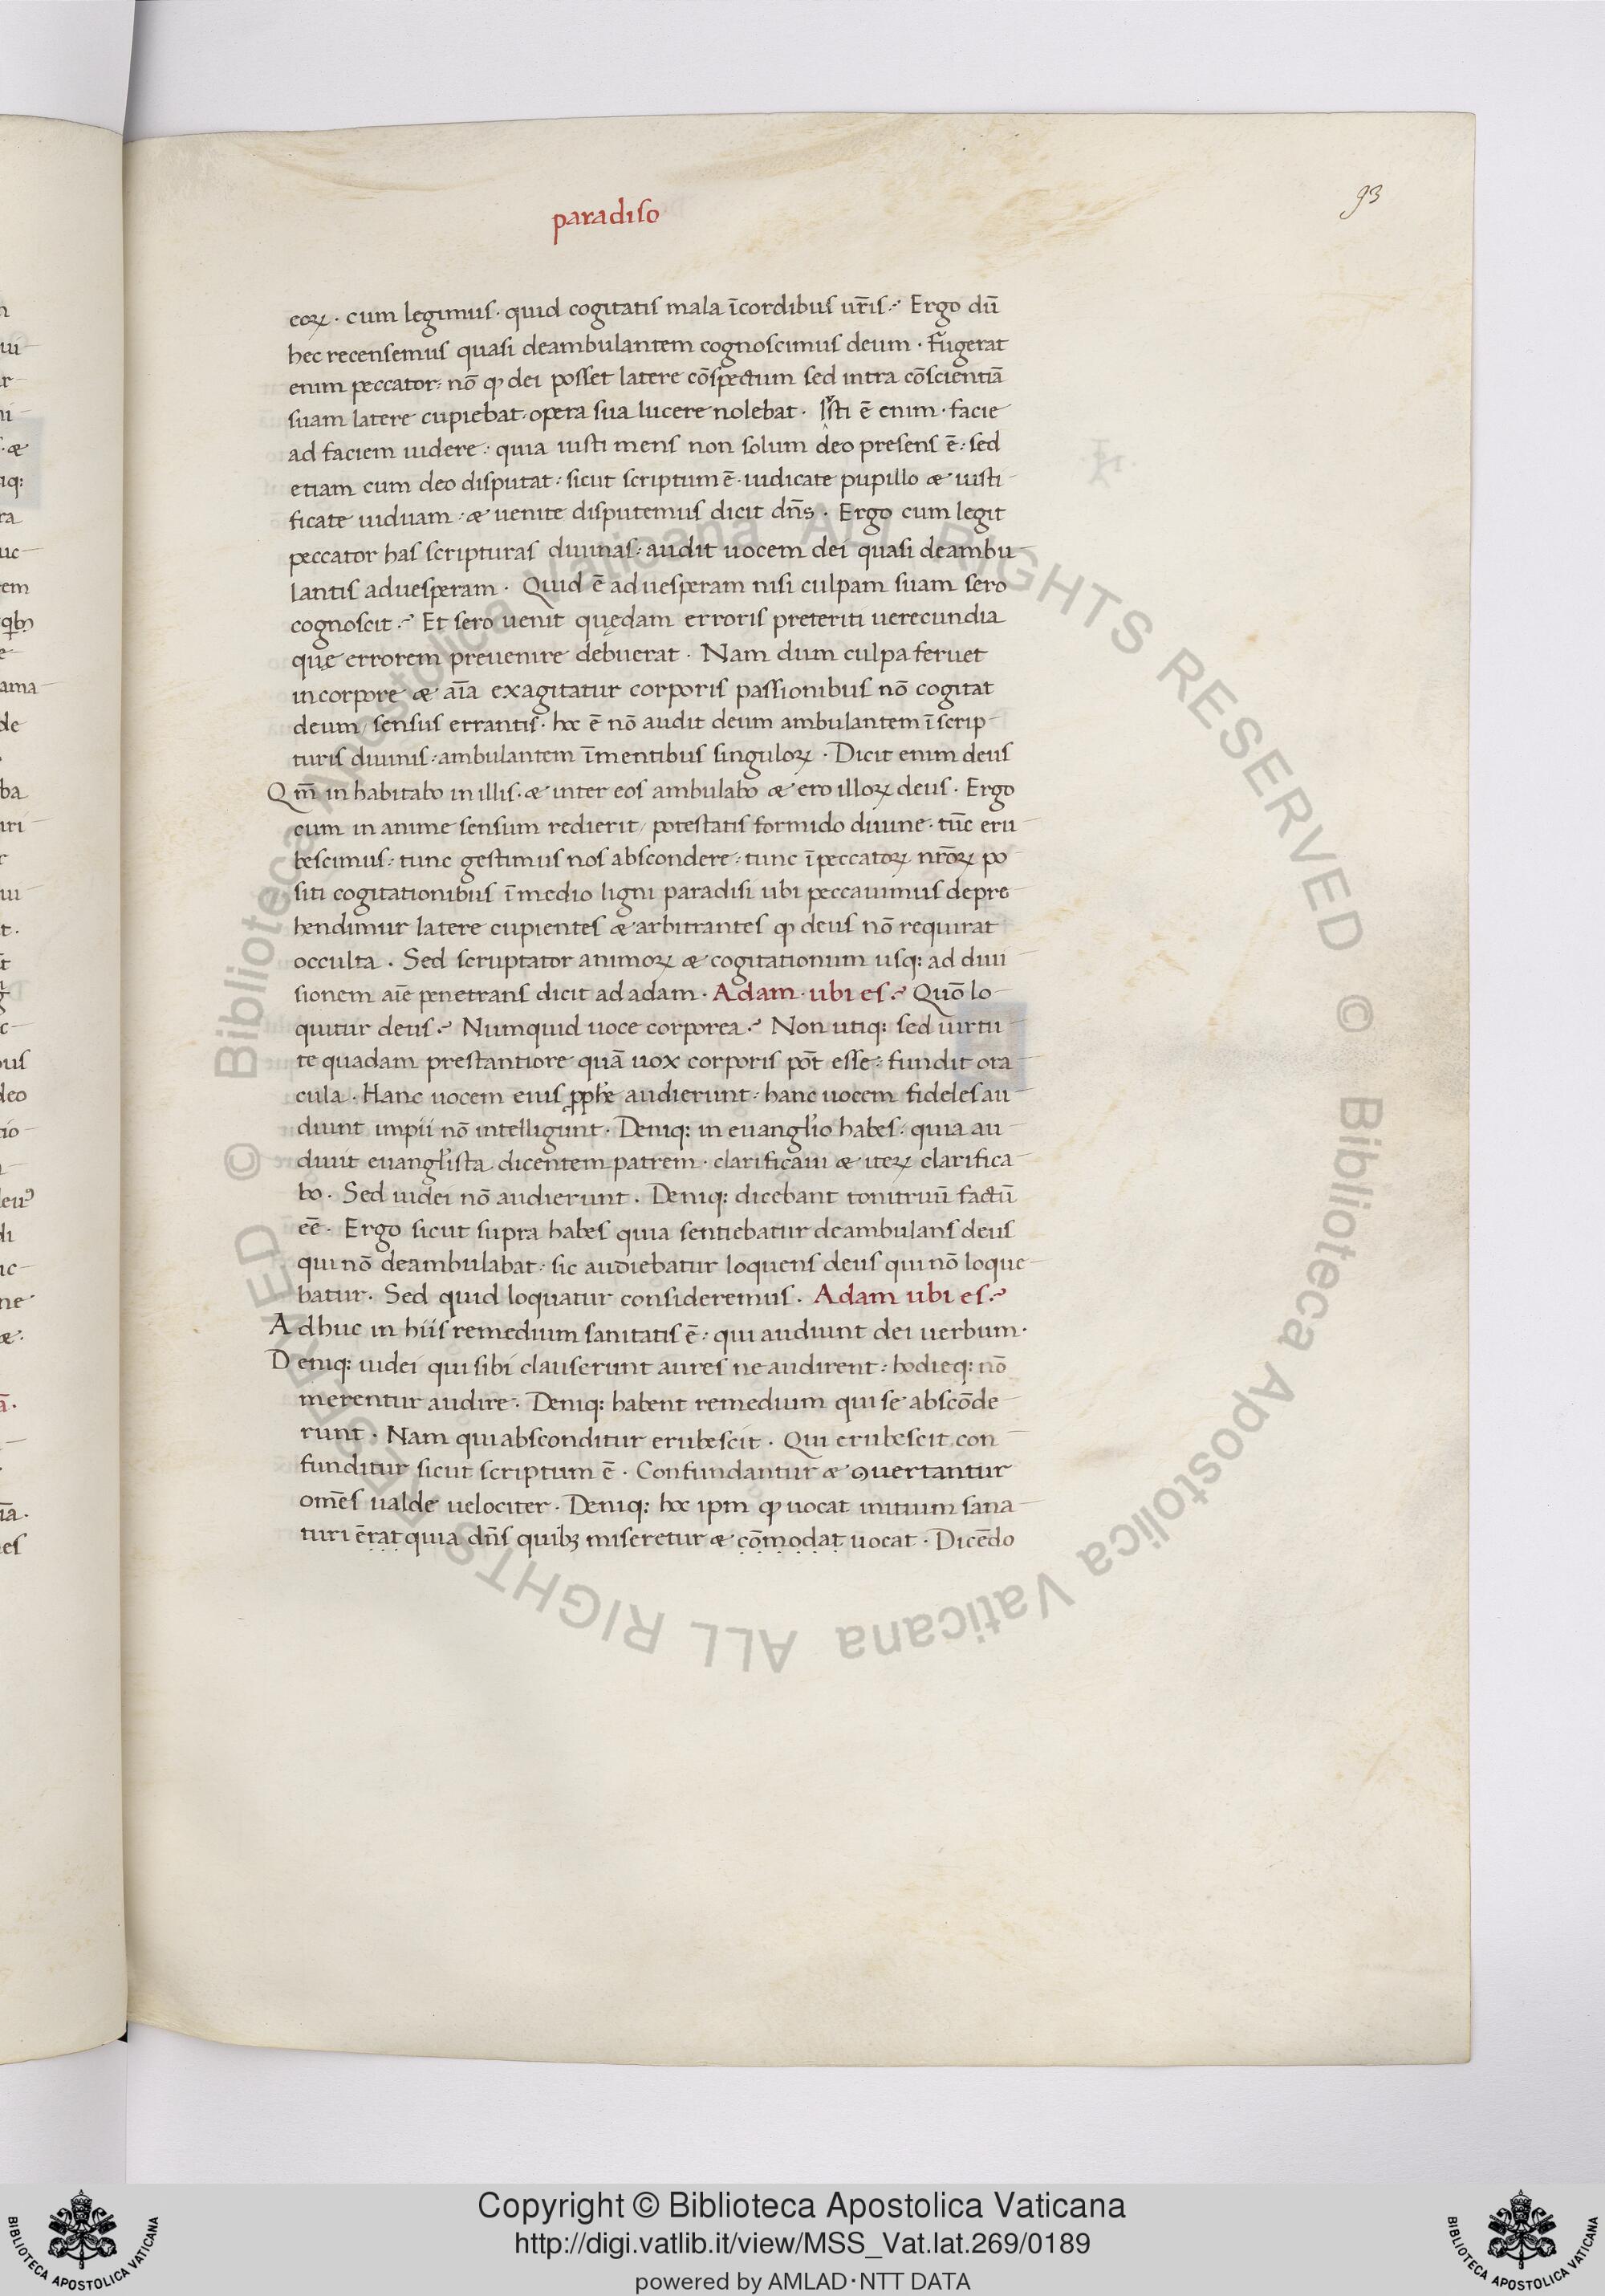 paradiso
93
eoꝝ · cum legimus · quid cogitatis mala ī cordibus ur̄is? Ergo dū
hec recensemus quasi deambulantem cognoscimus deum · Fugerat
enim peccator: nō ꝙ dei posset latere cōspectum sed intra cōscientiā
suam latere cupiebat · opera sua lucere nolebat · Iusti ē enim · facie
ad faciem uidere: quia iusti mens non solum deo presens ē: sed
etiam cum deo disputat: sicut scriptum ē · iudicate pupillo æ iusti
ficate uiduam · æ uenite disputemus dicit dn̄s · Ergo cum legit
peccator has scripturas diuinas: audit uocem dei quasi deambu
lantis ad uesperam · Quid ē ad uesperam nisi culpam suam sero
cognoscit? Et sero uenit quędam erroris preteriti uerecundia
quę errorem preuenire debuerat · Nam dum culpa feruet
in corpore æ aīa exagitatur corporis passionibus nō cogitat
deum / sensus errantis · hoc ē nō audit deum ambulantem ī scrip
turis diuinis: ambulantem ī mentibus singuloꝝ · Dicit enim deus
Qm̄ in habitabo in illis · æ inter eos ambulabo æ ero illoꝝ deus · Ergo
cum in anime sensum redierit / potestatis formido diuine · tūc eru
bescimus: tunc gestimus nos abscondere: tunc ī peccatoꝝ nr̄oꝝ po
siti cogitationibus ī medio ligni paradisi ubi peccauimus depre
hendimur latere cupientes æ arbitrantes ꝙ deus nō requirat
occulta · Sed scruptator animoꝝ æ cogitationum usq: ad diui
sionem aīe penetrans dicit ad adam · Adam · ubi es? Quō lo
quitur deus? Numquid uoce corporea? Non utiq: sed uirtu
te quadam prestantiore quā uox corporis pōt esse: fundit ora
cula · Hanc uocem eius ꝓph̄e audierunt: hanc uocem fideles au
diunt impii nō intelligunt · Deniq: in euangl̄io habes: quia au
diuit euangl̄ista dicentem patrem · clarificaui æ iteꝝ clarifica
bo · Sed iudei nō audierunt · Deniq: dicebant tonitruū factū
eē · Ergo sicut supra habes quia sentiebatur deambulans deus
qui nō deambulabat: sic audiebatur loquens deus qui nō loque
batur · Sed quid loquatur consideremus · Adam ubi es?
Adhuc in hiis remedium sanitatis ē: qui audiunt dei uerbum ·
Deniq: iudei qui sibi clauserunt aures ne audirent: hodieq: nō
merentur audire · Deniq: habent remedium qui se abscōde
runt · Nam qui absconditur erubescit · Qui erubescit con
funditur sicut scriptum ē · Confundantur æ ꝯuertantur
om̄es ualde uelociter · Deniq: hoc ipm ꝙ uocat initium sana
turi ērat quia dn̄s quibꝫ miseretur æ cōmodat uocat · Dicēdo
Copyright © Biblioteca Apostolica Vaticana
http://digi.vatlib.it/view/MSS_Vat.lat.269/0189
powered by AMLAD·NTT DATA